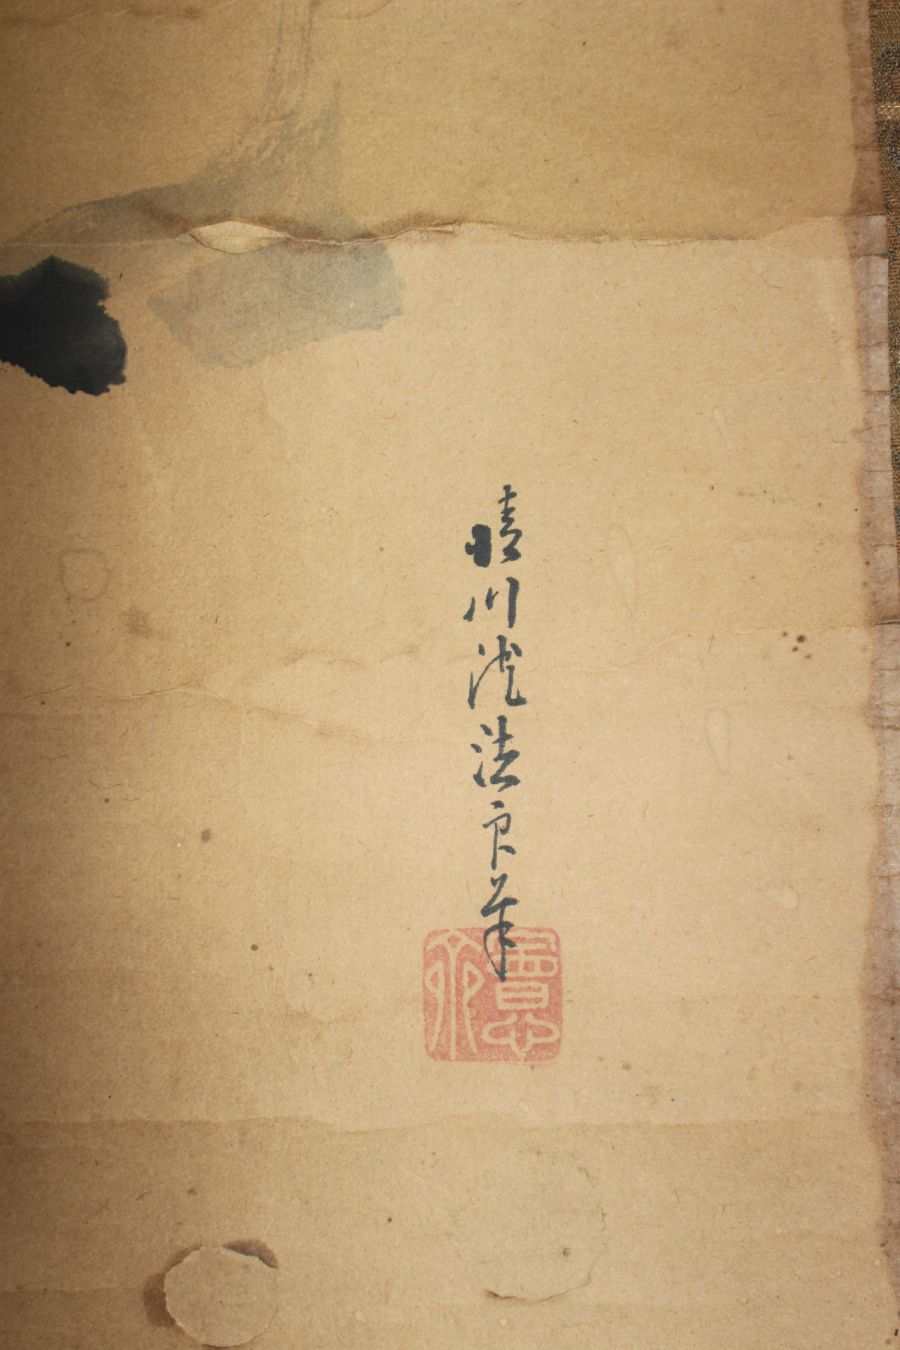 晴川院法眼筆